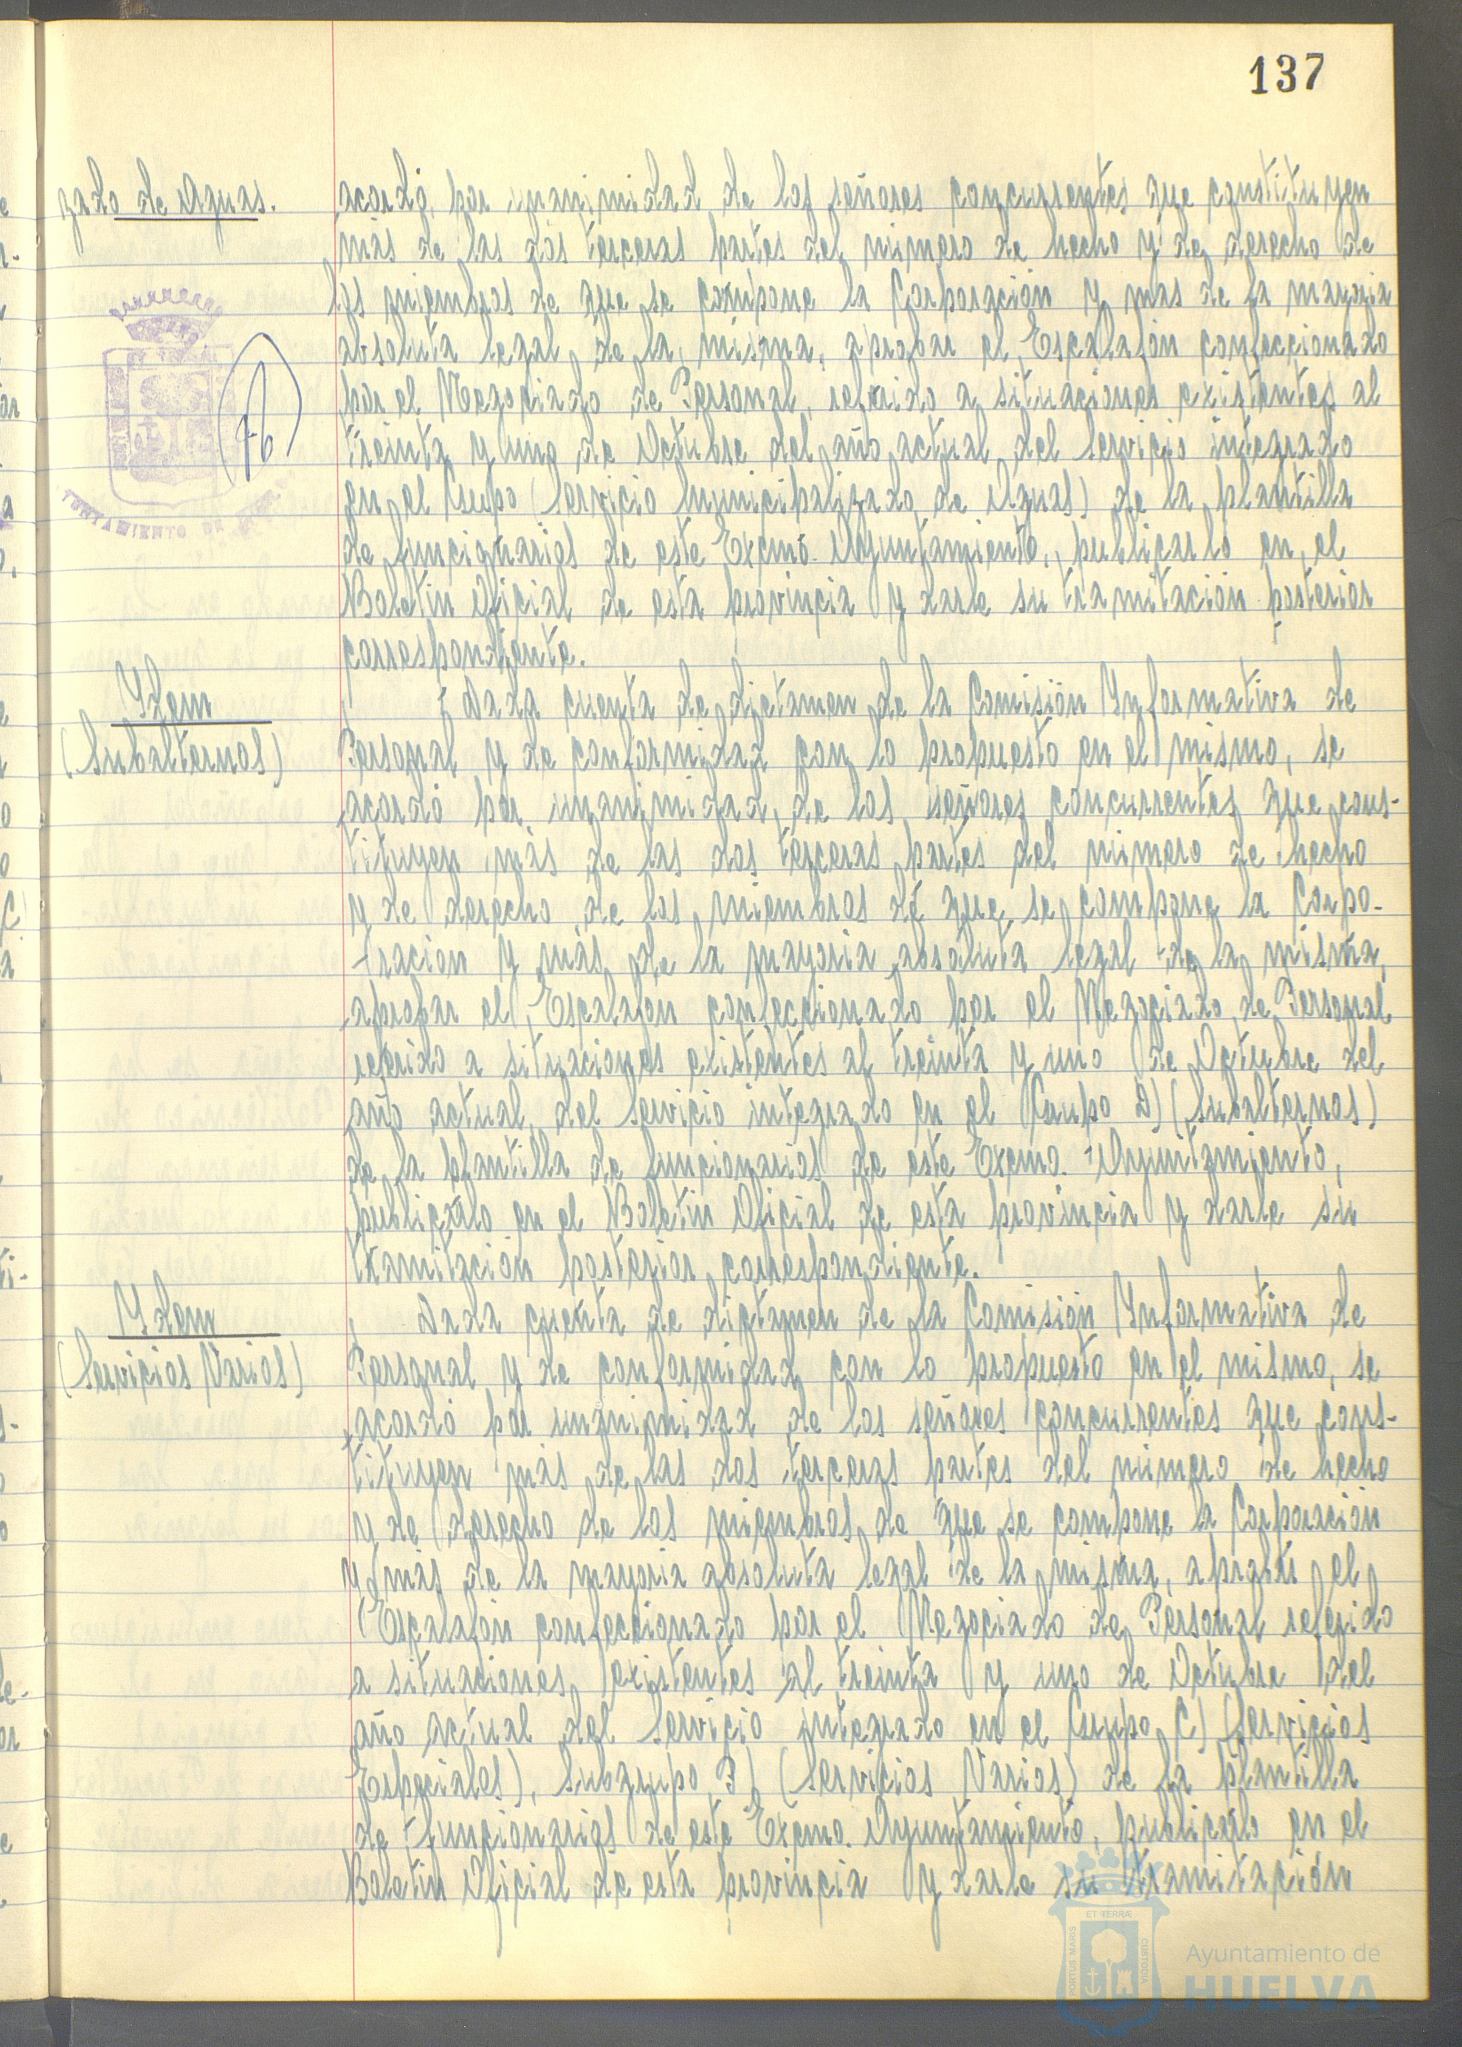 137
zado de Aguas.
acordó, por unanimidad de los señores concurrentes que constituyen
más de las dos terceras partes del número de hecho y de derecho de
los miembros de que se compone la Corporación y mas de la mayoria
absoluta legal de la misma, aprobar el Escalafón confeccionado
por el Negociado de Personal, referido a situaciones existentes al
treinta y uno de Octubre del año actual, del Servicio integrado
en el Grupo (Servicio Municipalizado de Aguas) de la plantilla
de funcionarios de este Excmo. Ayuntamiento, publicarlo en el
Boletin Oficial de esta provincia y darle su tramitación posterior
correspondiente.
Ydem
(Subalternos)
Dada cuenta de dictamen de la Comisión Informativa de
Personal y de conformidad con lo propuesto en el mismo, se
acordó por unanimidad, de los señores concurrentes que cons-
tituyen más de las dos terceras partes del número de hecho
y de derecho de los miembros de que se compone la Corpo-
ración y más de la mayoria absoluta legal de la misma,
aprobar el Escalafón confeccionado por el Negociado de Personal
referido a situaciones existentes al treinta y uno de Octubre del
año actual, del Servicio integrado en el Grupo D) (Subalternos)
de la plantilla de funcionarios de este Excmo. Ayuntamiento,
publicarlo en el Boletin Oficial de esta provincia y darle su
tramitación posterior correspondiente.
Ydem
(Servicios Varios)
Dada cuenta de dictamen de la Comisión Informativa de
Personal y de conformidad con lo propuesto en el mismo, se
acordó por unanimidad de los señores concurrentes que cons-
tituyen más de las dos terceras partes del número de hecho
y de derecho de los miembros de que se compone la Corporación
y más de la mayoria absoluta legal de la misma, aprobar el
Escalafón confeccionado por el Negociado de Personal referido
a situaciones existentes al treinta y uno de Octubre del
año actual del Servicio integrado en el Grupo C) (Servicios
Especiales), Subgrupo 3) (Servicios Varios) de la plantilla
de funcionarios de este Excmo. Ayuntamiento, publicarlo en el
Boletin Oficial de esta provincia y darle su tramitación
Ayuntamiento de
HUELVA